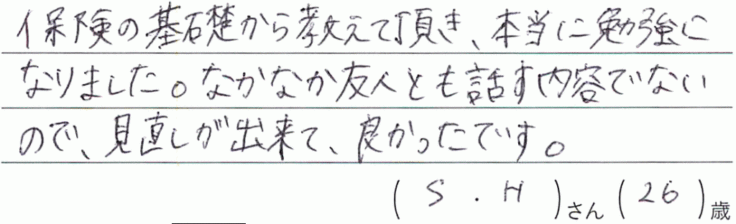 保険の基礎から教えて頂き、本当に勉強に
なりました。なかなか友人とも話す内容でない
ので、見直しが出来て、良かったです。
(S.H)さん(26)歳